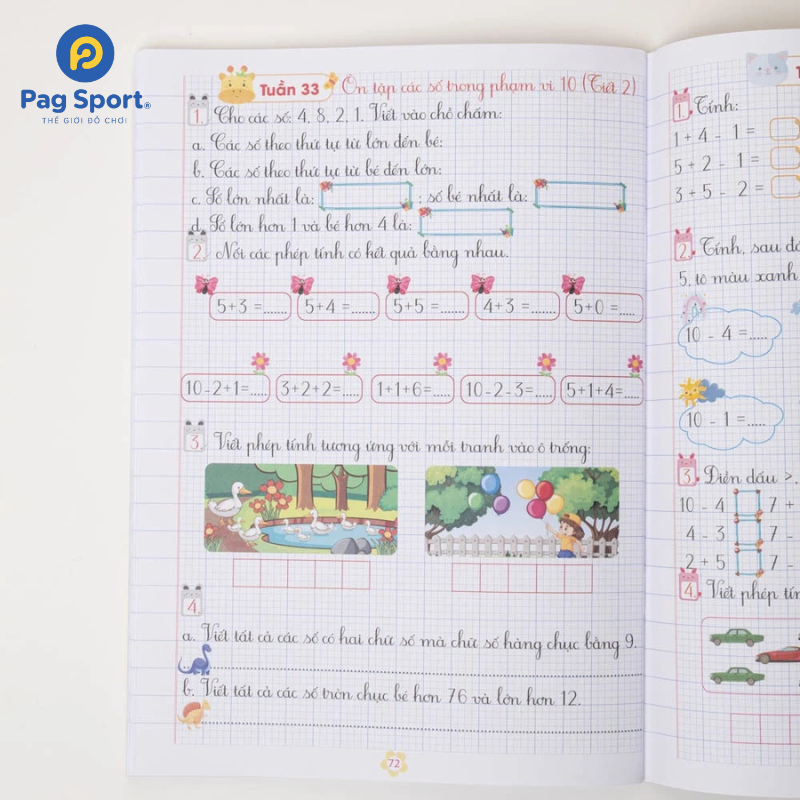 Pag Sport®
THẾ GIỚI ĐỒ CHƠI
Tuần 33 Ôn tập các số trong phạm vi 10 (Tiết 2)
1. Cho các số: 4, 8, 2, 1. Viết vào chỗ chấm:
a. Các số theo thứ tự từ lớn đến bé:
b. Các số theo thứ tự từ bé đến lớn:
c. Số lớn nhất là: ; số bé nhất là:
d. Số lớn hơn 1 và bé hơn 4 là:
2. Nối các phép tính có kết quả bằng nhau.
5+3 =....... 5+4 =....... 5+5 =....... 4+3 =....... 5+0 =.....
10-2+1=..... 3+2+2=..... 1+1+6=..... 10-2-3=..... 5+1+4=.....
3. Viết phép tính tương ứng với mỗi tranh vào ô trống:
4.
a. Viết tất cả các số có hai chữ số mà chữ số hàng chục bằng 9.
b. Viết tất cả các số tròn chục bé hơn 76 và lớn hơn 12.
72
1. Tính:
1 + 4 - 1 =
5 + 2 - 1 =
3 + 5 - 2 =
2. Tính, sau đó
5, tô màu xanh
10 - 4 =.....
10 - 1 =.....
3. Điền dấu >,
10 - 4 7 +
4 - 3 7 -
2 + 5 7 -
4. Viết phép tín